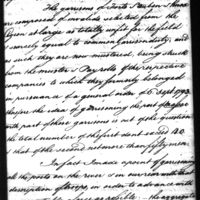 The garrisons of Forts Fayette & 
are composed of invalids selected from the
Legion at large as totally unfit for the field
& scarcely equal to common Garrison duty, and
as such they are now mustered, being struck
from the muster & Pay rolls of the respective
companies to which they formerly belonged
in pursuance of a general order of Sept 1793
therefore the idea of garrisoning the post
with part of those garrisons is out of the question
the total number of the first don't exceed 120
& that of the second not more than fifty men.
In fact I make a point of garrisoning
all the posts on the river & in our rear with that
description of troops, in order to advance with
as large as possible, the aggregate